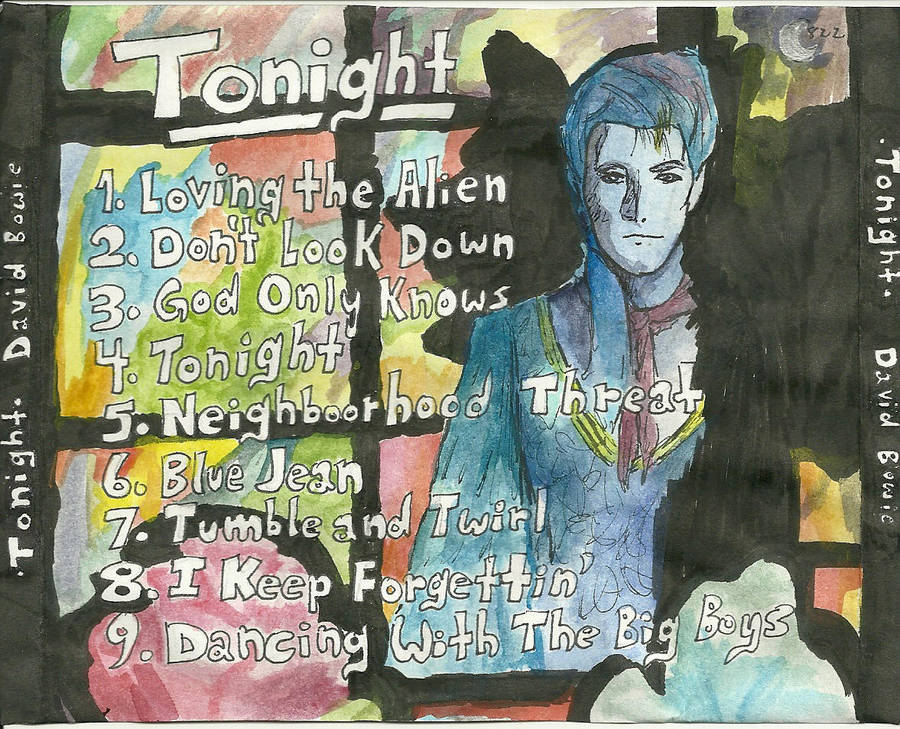 Tonight
1. Loving the Alien
2. Don't Look Down
3. God Only Knows
4. Tonight
5. Neighboorhood Threat
6. Blue Jean
7. Tumble and Twirl
8. I Keep Forgettin'
9. Dancing With The Big Boys
·Tonight· David Bowie
·Tonight· David Bowie
822